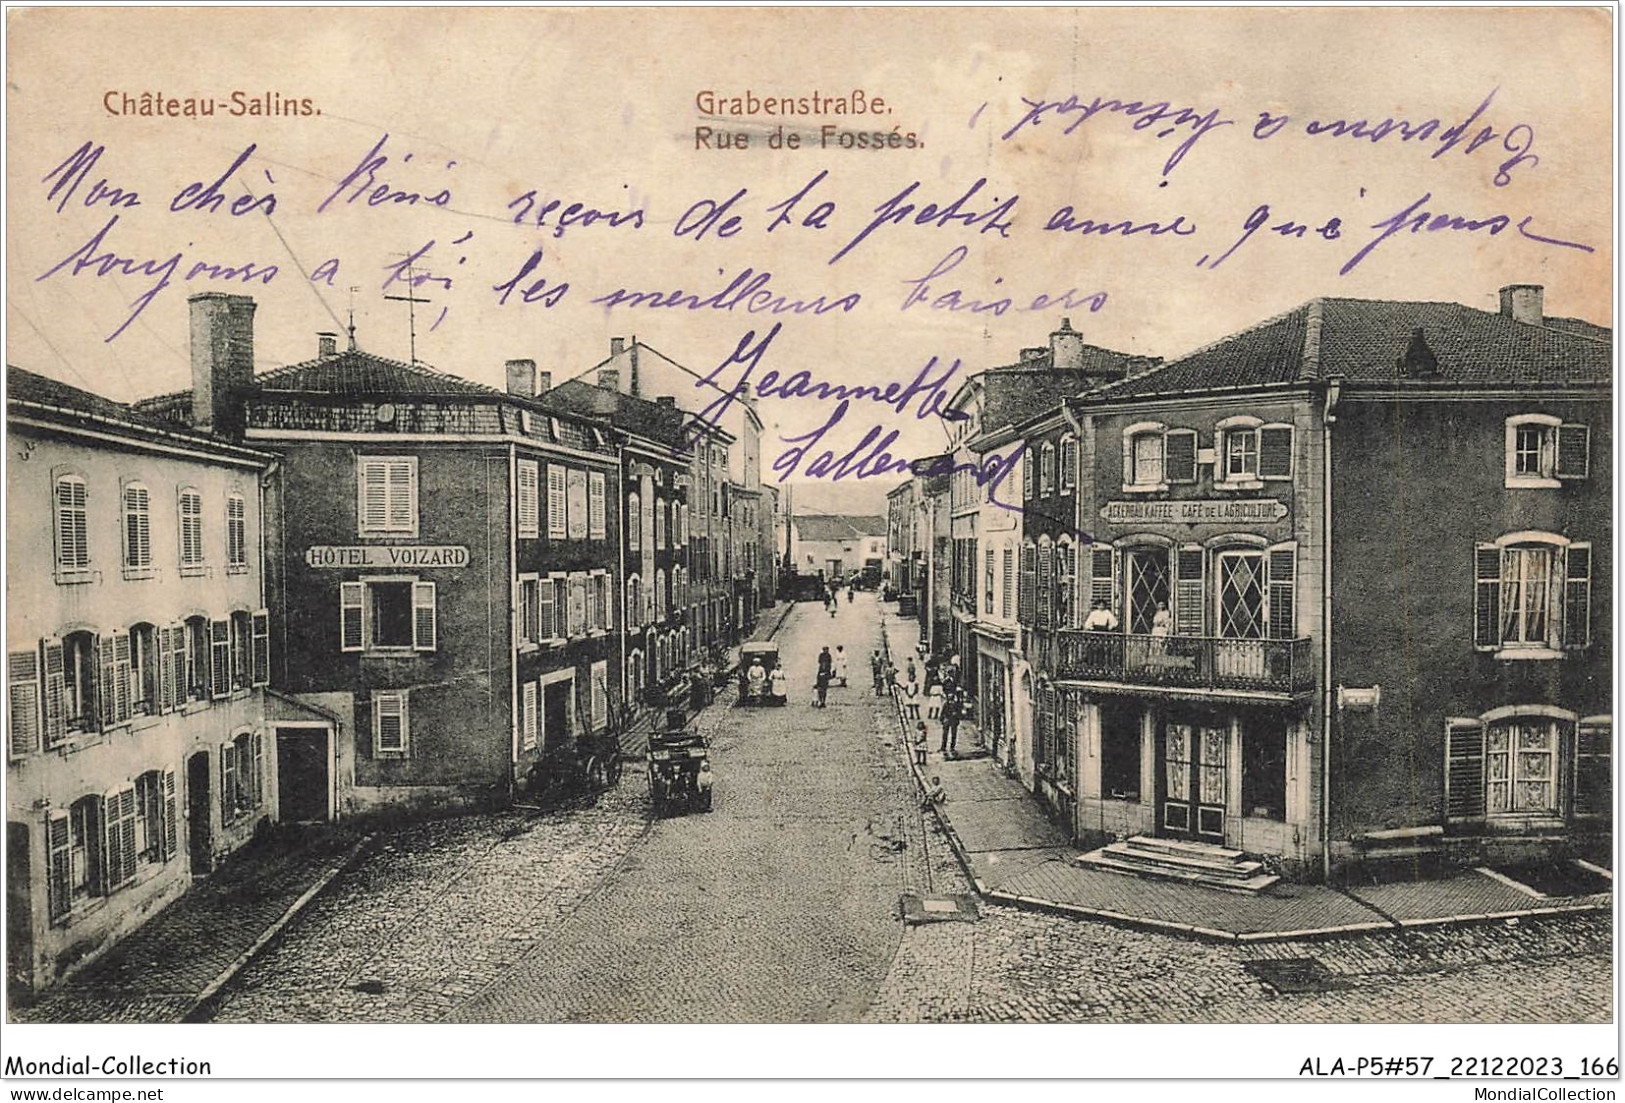 Château-Salins.
Grabenstraße.
Rue de Fossés.
Espérons a bientôt,
Mon chèr Réné, reçois de ta petite amie, qui pense
toujours a toi, les meilleurs baisers
Jeannette
Lallemand
HÔTEL VOIZARD
ACKERBAU KAFFÉE - CAFÉ DE L'AGRICULTURE
Mondial-Collection
ALA-P5#57_22122023_166
MondialCollection